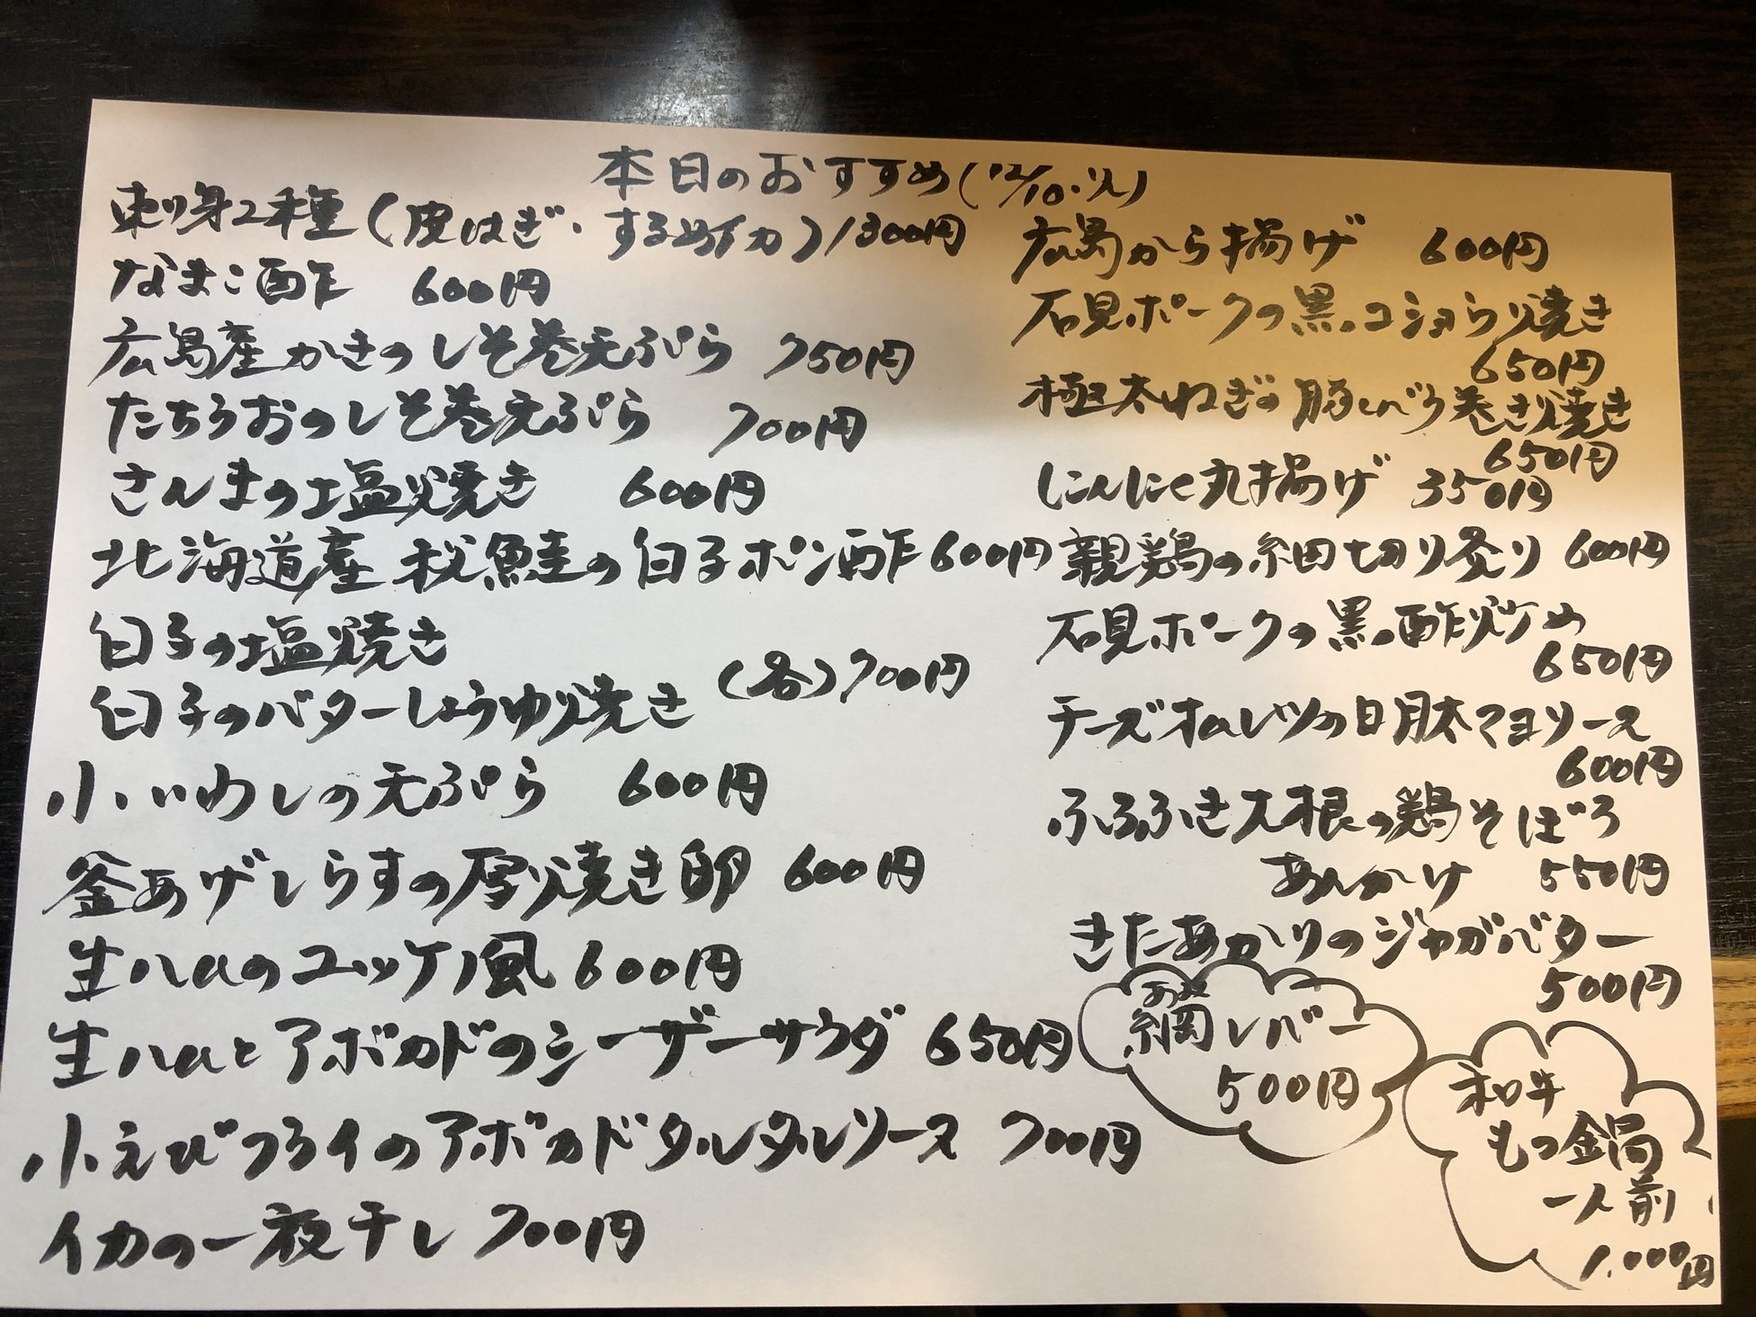 本日のおすすめ(12/10.火)
刺身2種(皮はぎ・するめイカ)1300円
なまこ酢 600円
広島産かきのしそ巻天ぷら 750円
たちうおのしそ巻天ぷら 700円
さんまの塩焼き 600円
北海道産 秋鮭の白子ポン酢 600円
白子の塩焼き
白子のバターしょうゆ焼き (各)700円
小いわしの天ぷら 600円
釜あげしらすの厚焼き卵 600円
生ハムのユッケ風 600円
生ハムとアボカドのシーザーサラダ 650円
小えびフライのアボカドタルタルソース 700円
イカの一夜干し 700円
広島から揚げ 600円
石見ポークの黒コショウ焼き
650円
極太ねぎの豚しそ巻き焼き
650円
にんにく丸揚げ 350円
親鶏の細切り炙り 600円
石見ポークの黒酢炒め
650円
チーズオムレツの明太マヨソース
600円
ふろふき大根の鶏そぼろ
あんかけ 550円
きたあかりのジャガバター
500円
あみ
網レバー
500円
和牛
もつ鍋
一人前
1,000円